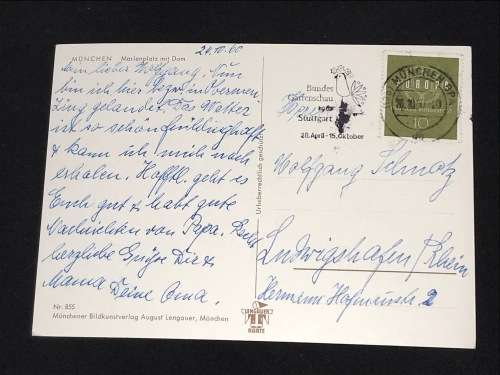 24.10.60
MÜNCHEN Marienplatz mit Dom
Mein lieber Wolfgang. Nun
bin ich hier in Obermen-
zing gelandet. Das Wetter
ist so schön frühlinghaft
& kann ich mich noch
erholen. Hofftl. geht es
Euch gut & habt gute
Nachrichten von Papa.
herzliche Grüße Dir &
Mama Deine Oma.
Nr. 855
Münchener Bildkunstverlag August Lengauer, München
Urheberrechtlich geschützt
LENGAUER
KARTE
Bundes
Gartenschau
1961
Stuttgart
28. April - 15. Oktober
MÜNCHEN
EUROPA
10
Wolfgang
Ludwigshafen/Rhein
Hermann Hofmannstr. 2